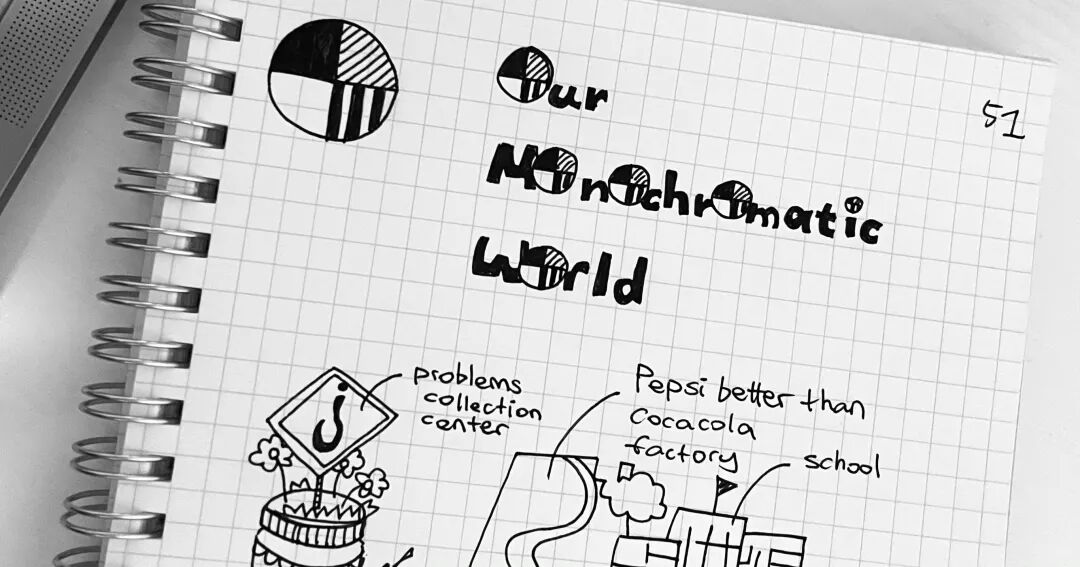 51
Our
Monochromatic
World
problems
collection
center
Pepsi better than
cocacola
factory
school